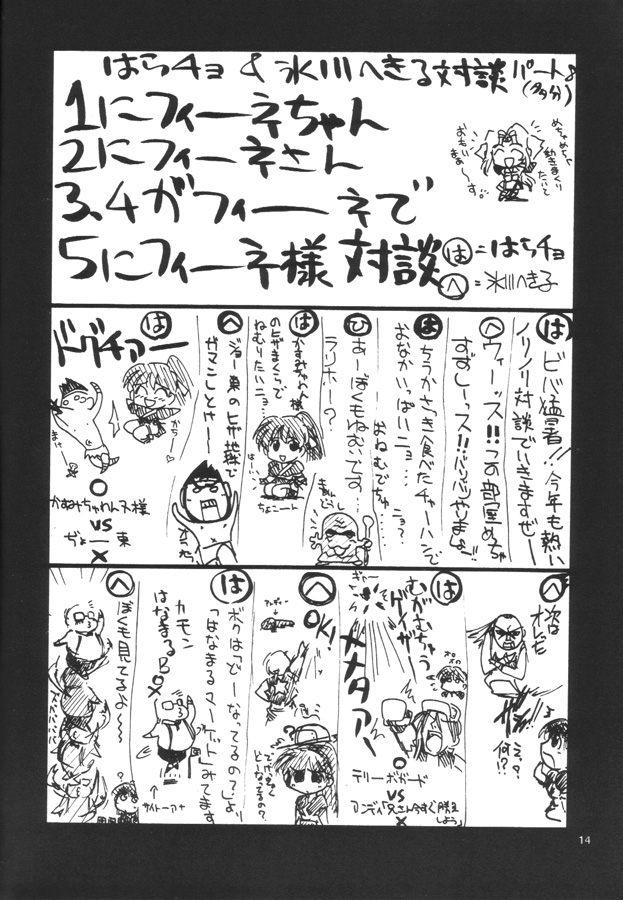 はらチョ & 氷川へきる対談パート8
(多分)
1にフィーネちゃん
2にフィーネさん
3、4がフィーネで
5にフィーネ様 対談
めちゃめちゃ
動きまくり
たいて
おもいまぁ〜す。
は=はらチョ
へ=氷川へき子
は ビバ猛暑!!今年も熱い
ノリノリ対談でいきますぜー
へ ウィーッス!!この部屋めちゃ
すずしーッス!!バリバリやりまっよ!!
は ちうかさっき食べたチャーハンで
おなかいっぱいニョ…
おねむでちゅ… ニョ?
ひ あーぼくもねむいです…
ラリホー?
は かすみちゃわん様
のヒザまくらで
ねむりたいニョ…
はーい。
ちょこニート
へ ジョー東のヒザ地獄で
ガマンしとけやー
は ドグチアー
かち♡
まけ
○
かすみちゃわんス様
VS
ぢょー東
×
へ 次は
オレだ
えっ?
何!?
は むがむちゅう
ゲイザー
ギャー
ポポポ
メメタァー
○
テリーボガード
VS
アンディ「兄さん今すぐ脱出
しよう」
×
へ OK!
は ボクは「どーなってるの?」よ。
「はなまるマーケット」みてます
カモン
はなまるB
○×
↑
サイトーアナ
へ ぼくも見てるよ〜〜
14